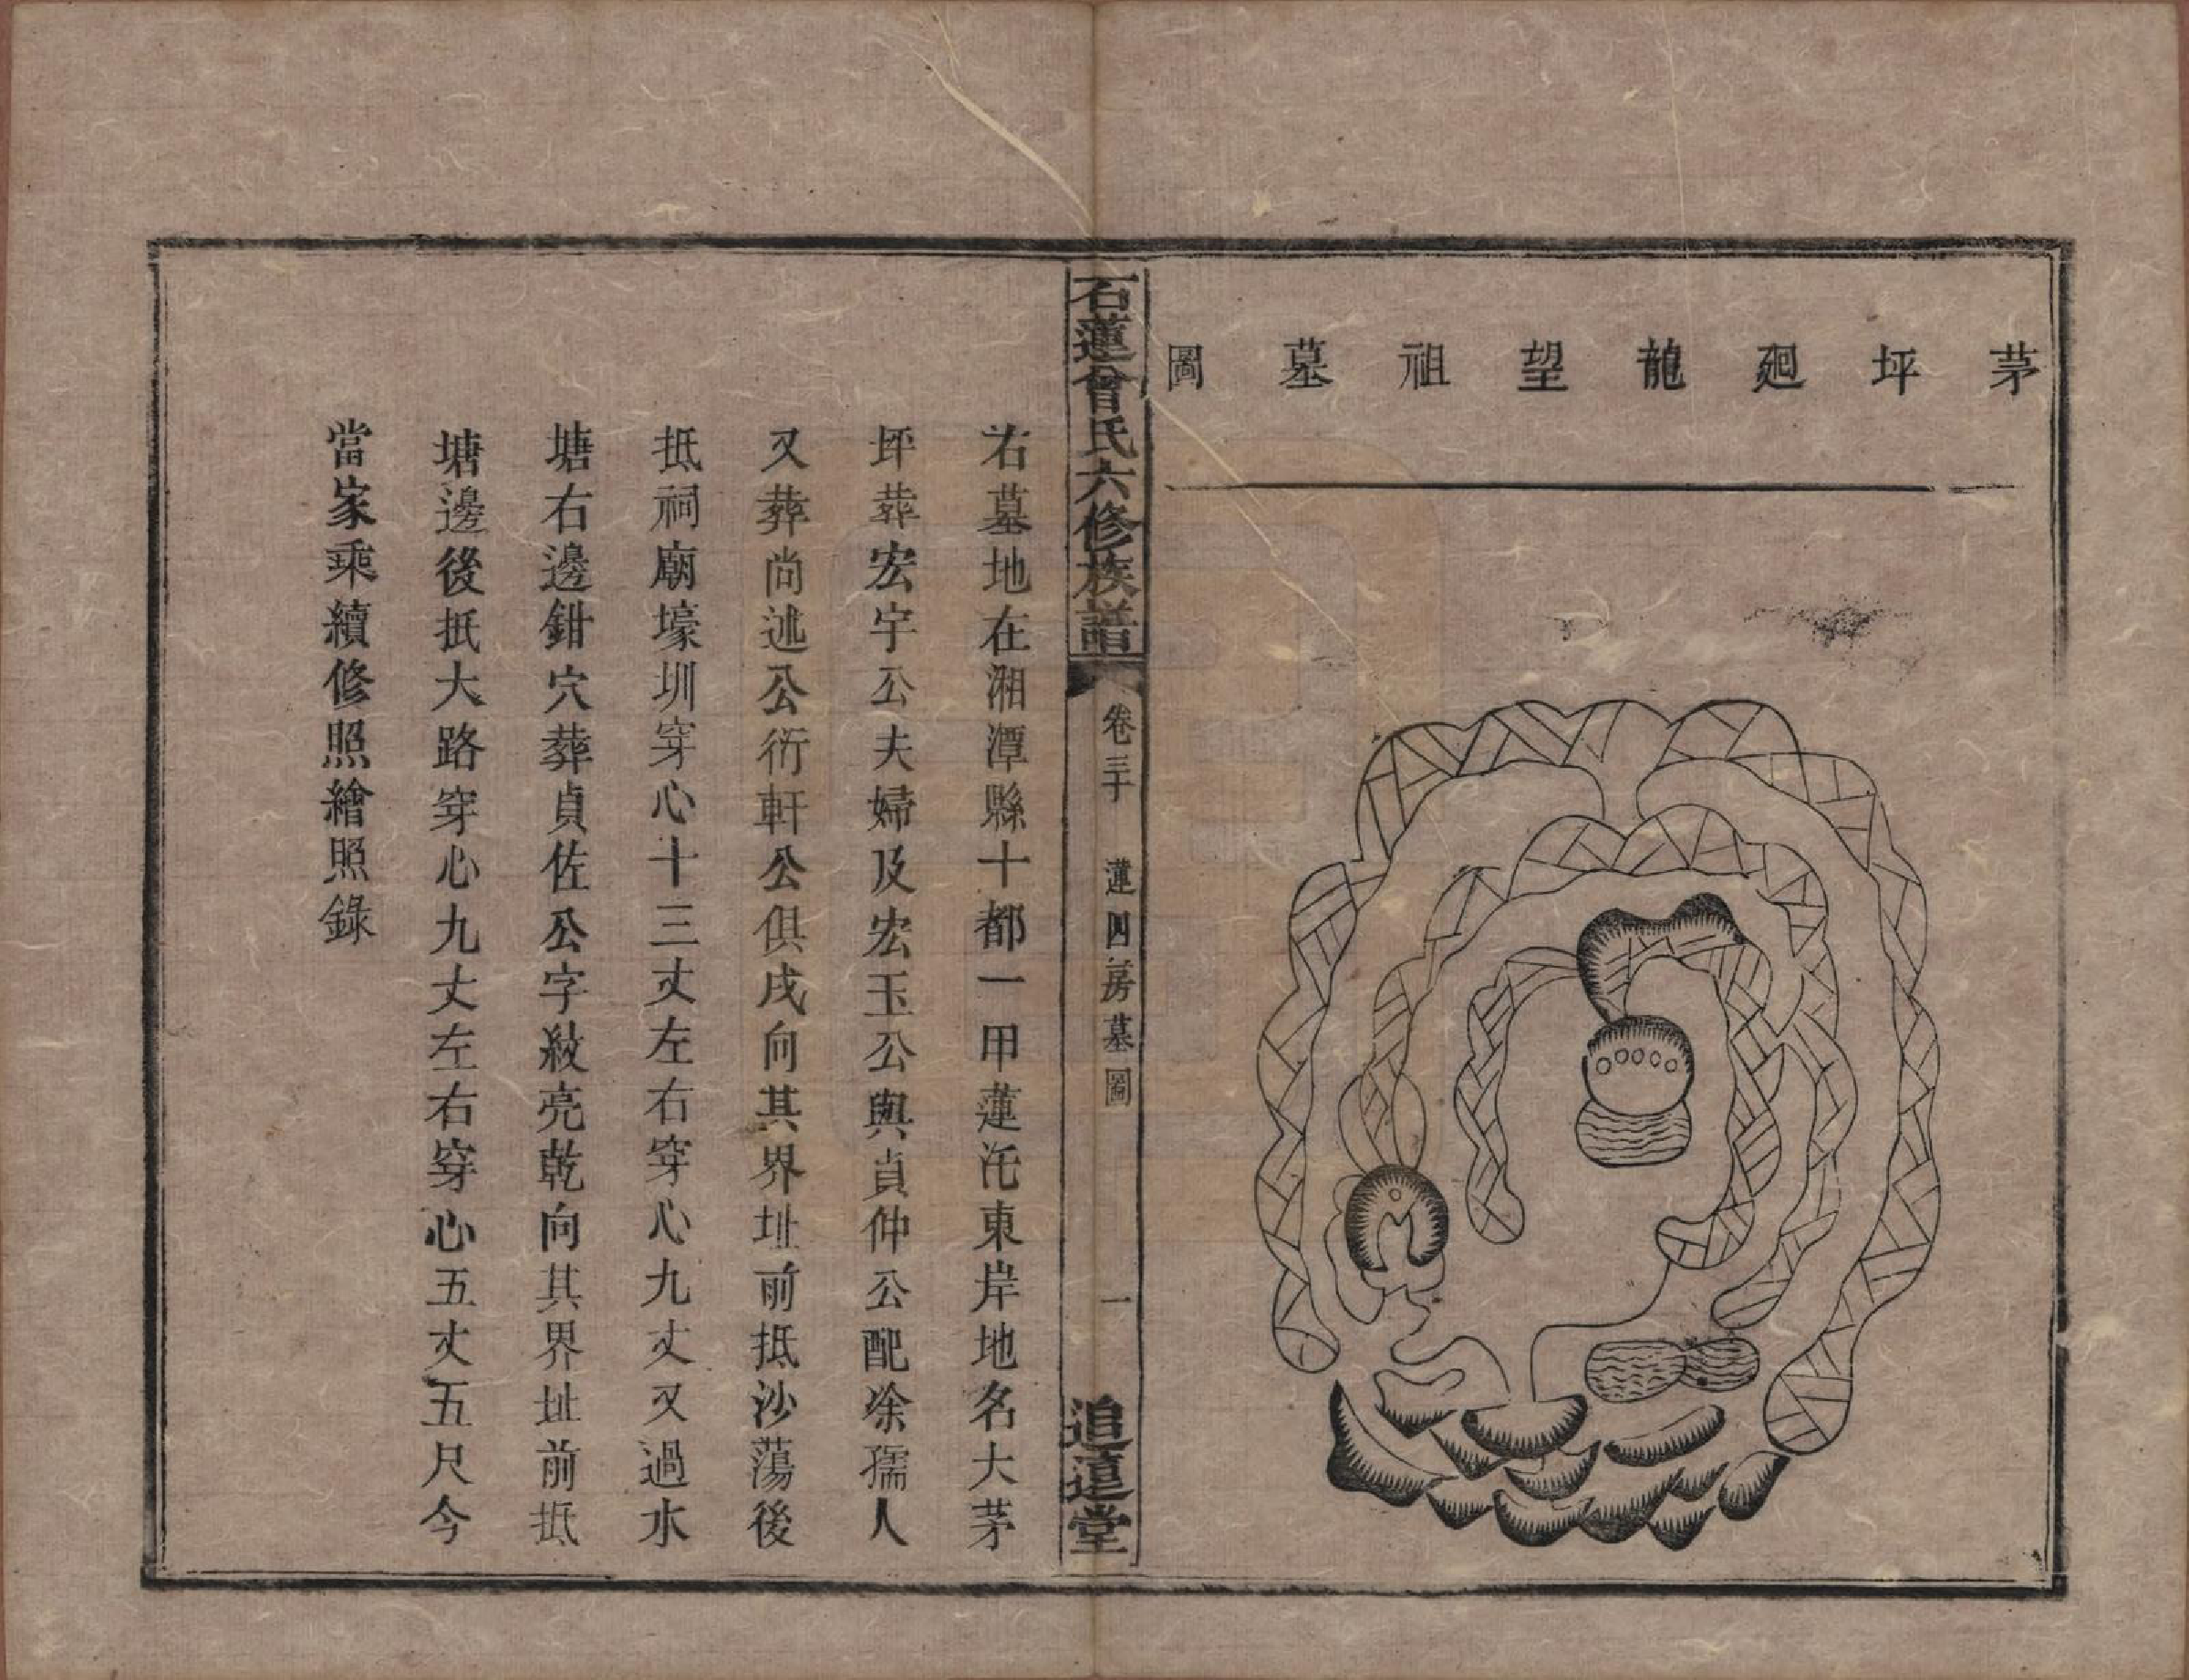 茅坪廻龍望祖墓圖
石蓮曾氏六修族譜
卷三十
蓮四房墓圖
一
追遠堂
右墓地在湘潭縣十都一甲蓮沱東岸地名大茅
坪葬宏宇公夫婦及宏玉公與貞仲公配凃孺人
又葬尚述公衍軒公俱戌向其界址前抵沙蕩後
抵祠廟壕圳穿心十三丈左右穿心九丈又過水
塘右邊鉗穴葬貞佐公字紋亮乾向其界址前抵
塘邊後抵大路穿心九丈左右穿心五丈五尺今
當家乘續修照繪照錄